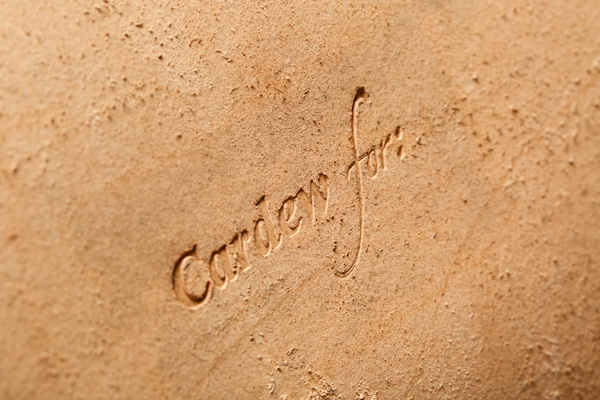 Cardew for;